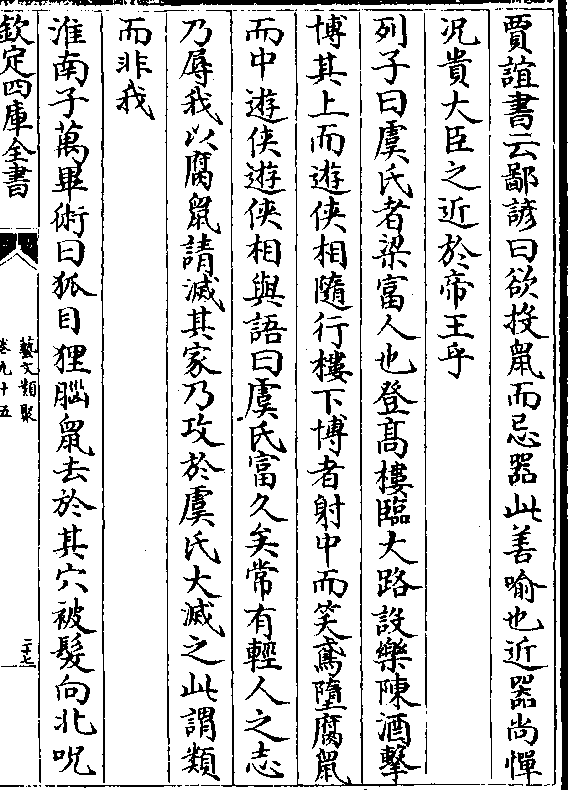 賈誼書云鄙諺曰欲投鼠而忌器此善喻也近器尚憚
况貴大臣之近於帝王乎
列子曰虞氏者梁富人也登髙樓臨大路設樂陳酒擊
博其上而遊俠相隨行樓下博者射中而笑鳶墮腐鼠
而中遊俠遊俠相與語曰虞氏富久矣常有輕人之志
乃辱我以腐鼠請滅其家乃攻於虞氏大滅之此謂類
而非我
淮南子萬畢術曰狐目狸腦鼠去於其穴被髮向北呪
欽定四庫全書
藝文類聚
卷九十五
二十七